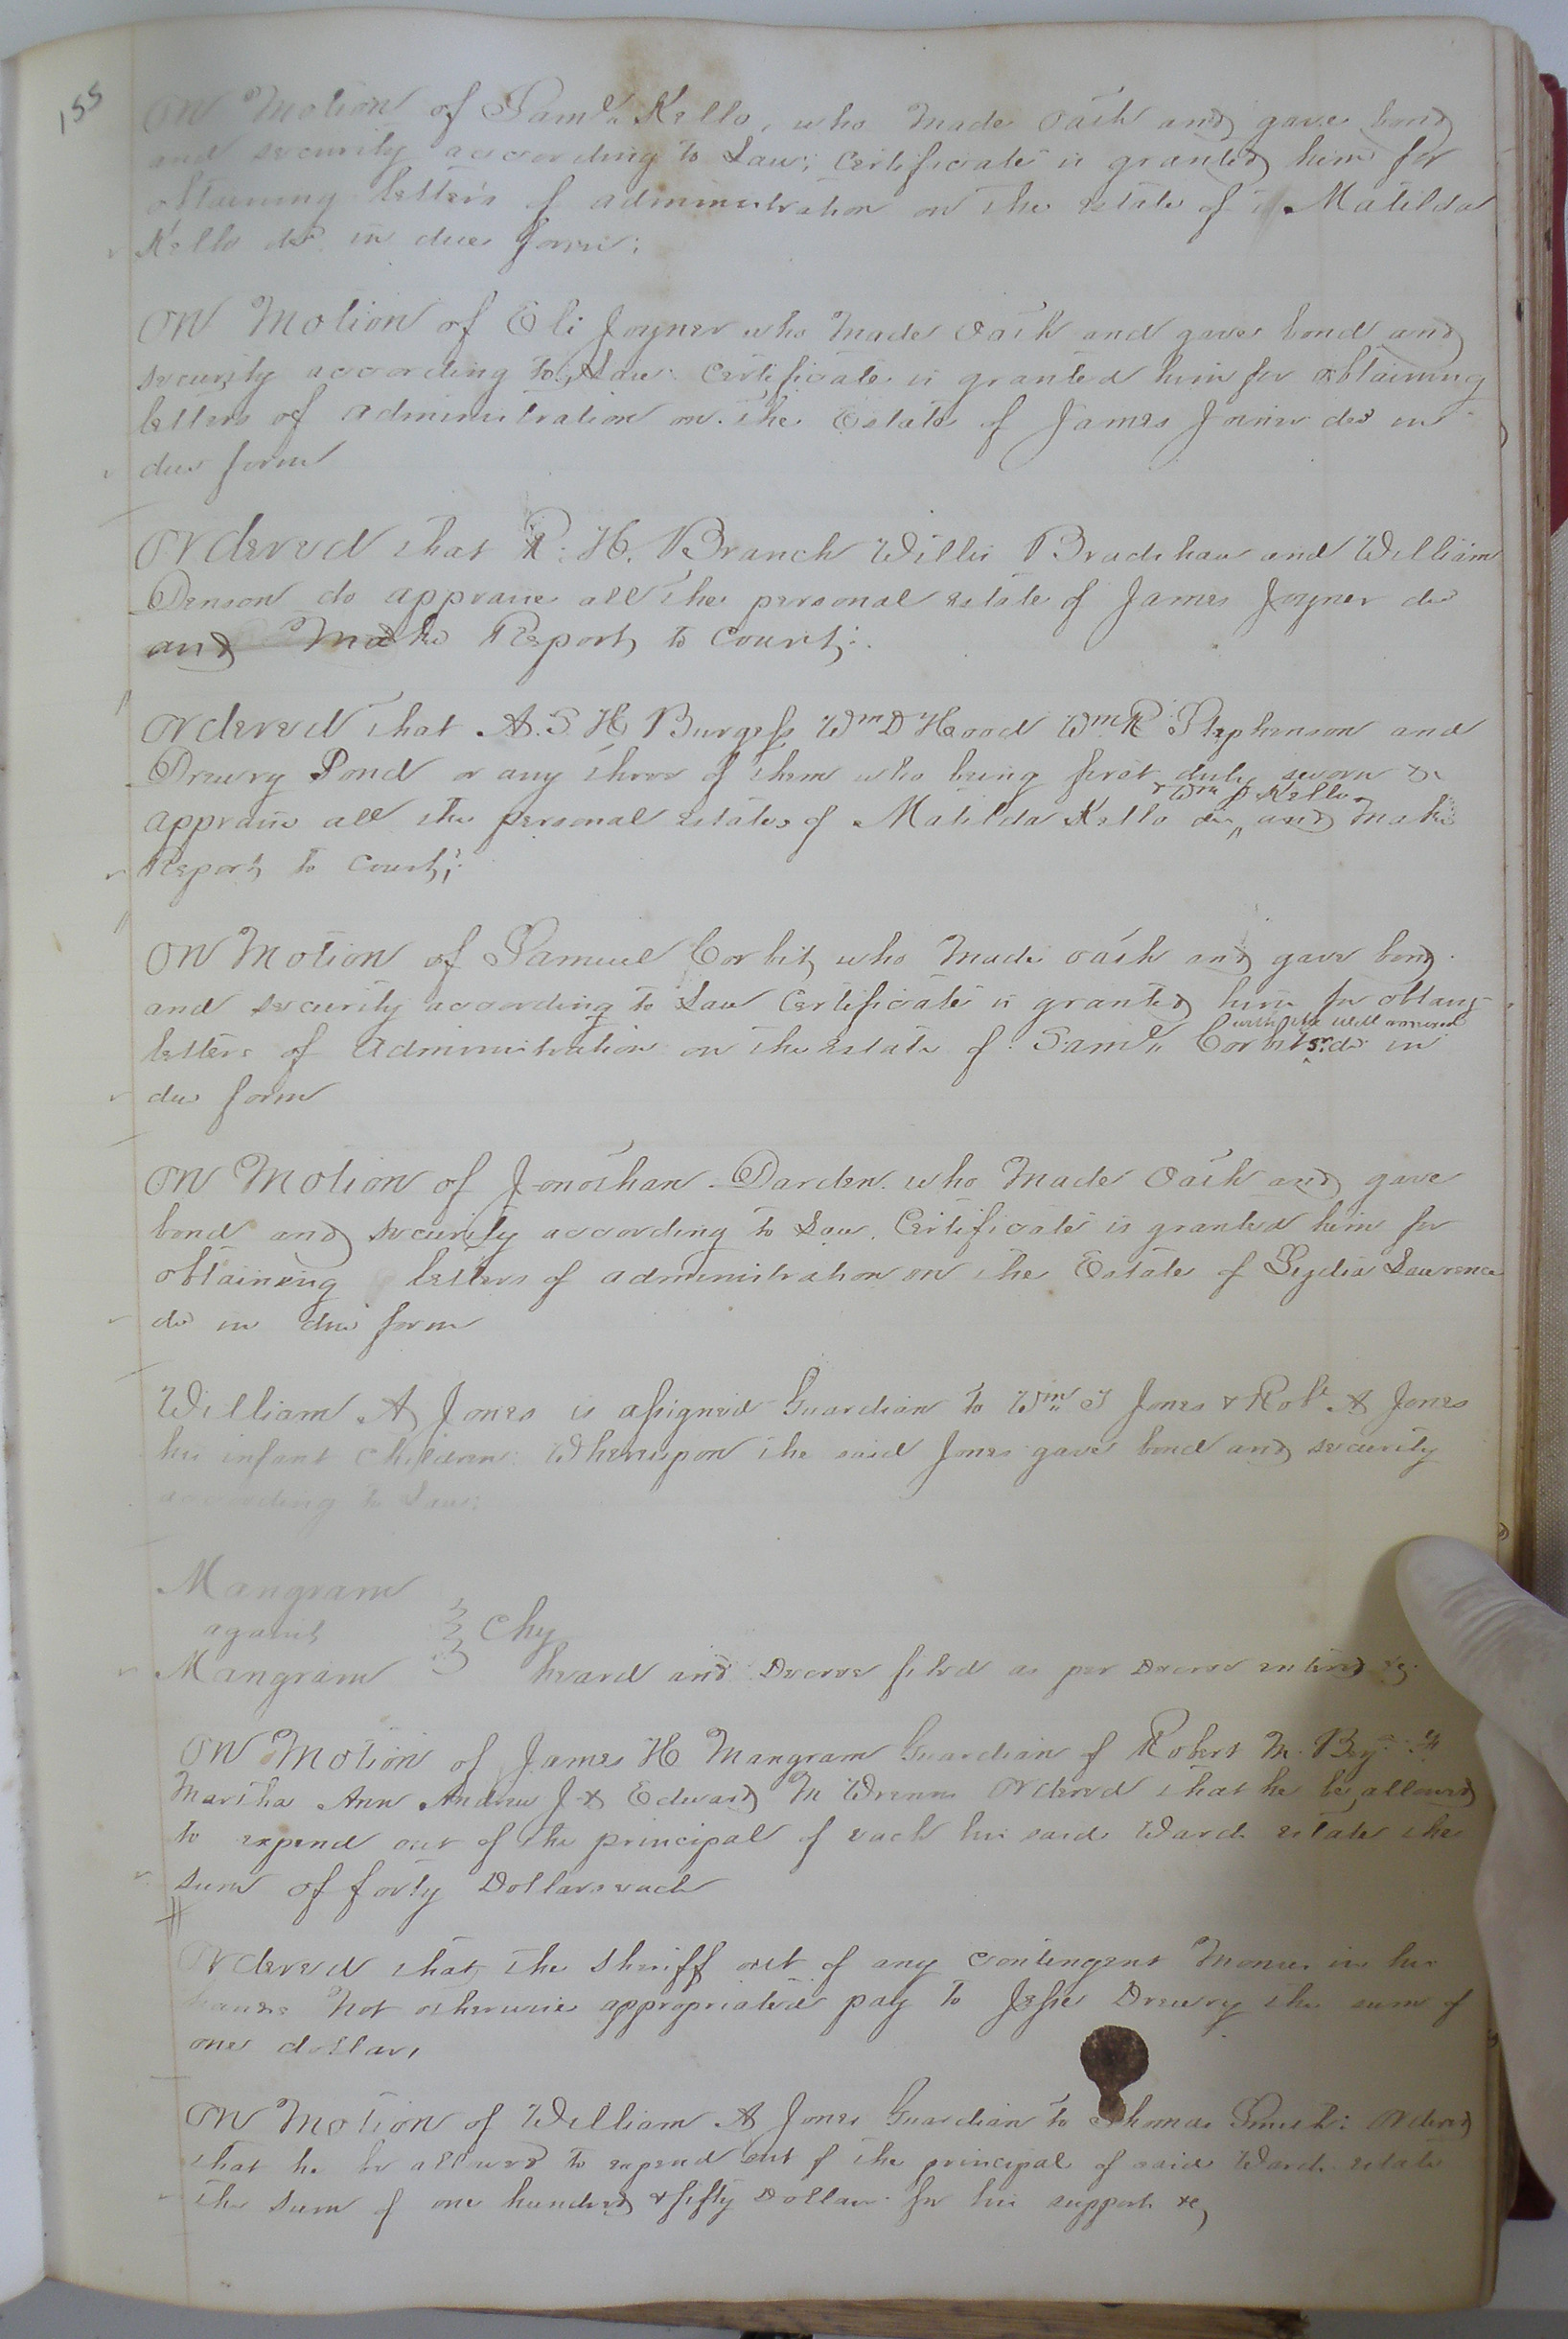 155
On Motion of Saml. Kello, who made oath and gave bond
and security according to Law; Certificate is granted him for
obtaining letters of administration on the estate of Matilda
Kello decd in due form;
On Motion of Eli Joyner who made oath and gave bond and
security according to Law: Certificate is granted him for obtaining
letters of Administration on the Estate of James Joiner decd in
due form
Ordered that R. H. Branch Willis Bradshaw and William
Denson do appraise all the personal estate of James Joyner decd
and Make Report to Court;
Ordered that A. S. H Burgess Wm D Hood Wm R Stephenson and
Drewry Pond or any three of them who being first duly sworn do
appraise all the personal estate of Matilda Kello decd & Wm D Kello and make
Report to Court;
On Motion of Samuel Corbit who made oath and gave bond
and security according to Law Certificate is granted him for obtaing
letters of Administration on the estate of Saml. Corbit Sr. decd with the will annexed in
due form
On Motion of Jonothan Darden who made oath and gave
bond and security according to Law. Certificate is granted him for
obtaining letters of administration on the Estate of Lydia Lawrence
decd in due form
William A Jones is assigned Guardian to Wm T Jones & Robt A Jones
his infant children: Whereupon the said Jones gave bond and security
according to Law;
Mangram
against } Chy
Mangram heard and Decree filed as per Decree entered &c.
On Motion of James H Mangram Guardian of Robert M. Benj. F
Martha Ann Andrew J & Edward M Wrenn Ordered that he be allowed
to expend out of the principal of each his said Wards estate the
sum of forty Dollars each
Ordered that the Sheriff out of any contingent Monies in his
hands not otherwise appropriated pay to Jesse Drewry the sum of
one dollar,
On Motion of William A Jones Guardian to Thomas Smith: Ordered
that he be allowed to expend out of the principal of said Wards estate
the sum of one hundred & fifty Dollars for his support &c,